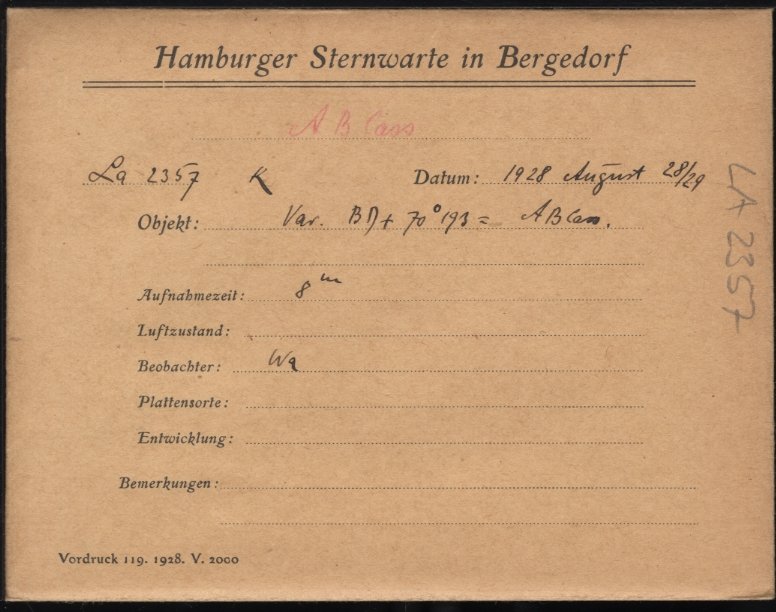 Hamburger Sternwarte in Bergedorf
A B Cass
La 2357 K Datum: 1928 August 28/29
Objekt: Var. BD + 70° 193 = AB Cass.
Aufnahmezeit: 8 m
Luftzustand:
Beobachter: Wa
Plattensorte:
Entwicklung:
Bemerkungen:
Vordruck 119. 1928. V. 2000
LA 2357